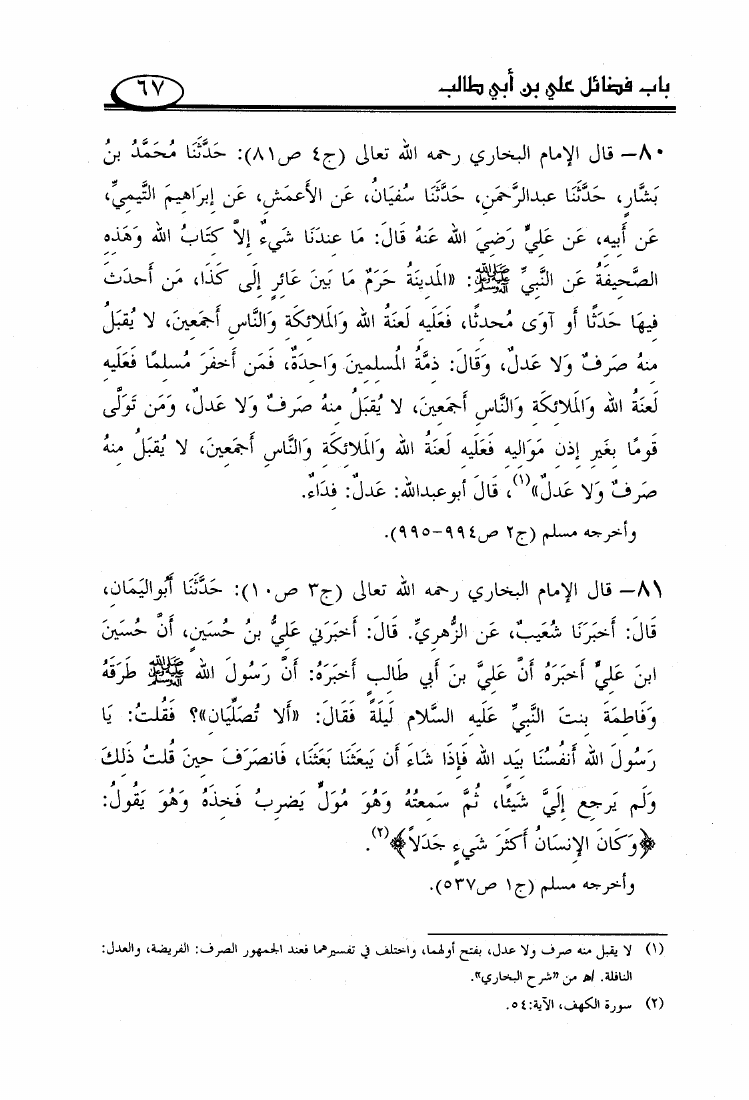 باب فضائل علي بن أبي طالب
٦٧
٨٠– قال الإمام البخاري رحمه الله تعالى (ج٤ ص٨١): حَدَّثَنَا مُحَمَّدُ بنُ
بَشَّارٍ، حَدَّثَنَا عبدالرَّحمَنِ، حَدَّثَنَا سُفيَانُ، عَنِ الأَعمَشِ، عَن إِبرَاهِيمَ التَّيمِيِّ،
عَن أَبِيهِ، عَن عَلِيٍّ رَضِيَ الله عَنهُ قَالَ: مَا عِندَنَا شَيءٌ إِلاَّ كِتَابُ الله وَهَذِهِ
الصَّحِيفَةُ عَن النَّبِيِّ ﷺ: «المَدِينَةُ حَرَمٌ مَا بَينَ عَائِرٍ إِلَى كَذَا، مَن أَحدَثَ
فِيهَا حَدَثًا أَو آوَى مُحدِثًا، فَعَلَيهِ لَعنَةُ الله وَالمَلائِكَةِ وَالنَّاسِ أَجمَعِينَ، لا يُقبَلُ
مِنهُ صَرفٌ وَلا عَدلٌ، وَقَالَ: ذِمَّةُ المُسلِمِينَ وَاحِدَةٌ، فَمَن أَخفَرَ مُسلِمًا فَعَلَيهِ
لَعنَةُ الله وَالمَلائِكَةِ وَالنَّاسِ أَجمَعِينَ، لا يُقبَلُ مِنهُ صَرفٌ وَلا عَدلٌ، وَمَن تَوَلَّى
قَومًا بِغَيرِ إِذنِ مَوَالِيهِ فَعَلَيهِ لَعنَةُ الله وَالمَلائِكَةِ وَالنَّاسِ أَجمَعِينَ، لا يُقبَلُ مِنهُ
صَرفٌ وَلا عَدلٌ»(١)، قَالَ أبوعبدالله: عَدلٌ: فِدَاءٌ.
وأخرجه مسلم (ج٢ ص٩٩٤-٩٩٥).
٨١– قال الإمام البخاري رحمه الله تعالى (ج٣ ص١٠): حَدَّثَنَا أَبُواليَمَانِ،
قَالَ: أَخبَرَنَا شُعَيبٌ، عَنِ الزُّهرِيِّ. قَالَ: أَخبَرَنِي عَلِيُّ بنُ حُسَينٍ، أَنَّ حُسَينَ
ابنَ عَلِيٍّ أَخبَرَهُ أَنَّ عَلِيَّ بنَ أَبِي طَالِبٍ أَخبَرَهُ: أَنَّ رَسُولَ الله ﷺ طَرَقَهُ
وَفَاطِمَةَ بِنتَ النَّبِيِّ عَلَيهِ السَّلام لَيلَةً فَقَالَ: «أَلا تُصَلِّيَانِ»؟ فَقُلتُ: يَا
رَسُولَ الله أَنفُسُنَا بِيَدِ الله فَإِذَا شَاءَ أَن يَبعَثَنَا بَعَثَنَا، فَانصَرَفَ حِينَ قُلتُ ذَلِكَ
وَلَم يَرجِع إِلَيَّ شَيئًا، ثُمَّ سَمِعتُهُ وَهُوَ مُوَلٍّ يَضرِبُ فَخِذَهُ وَهُوَ يَقُولُ:
﴿وَكَانَ الإِنسَانُ أَكثَرَ شَيءٍ جَدَلاً﴾(٢).
وأخرجه مسلم (ج١ ص٥٣٧).
(١) لا يقبل منه صرف ولا عدل، بفتح أولهما، واختلف في تفسيرهما فعند الجمهور الصرف: الفريضة، والعدل:
النافلة. اهـ من "شرح البخاري".
(٢) سورة الكهف، الآية:٥٤.